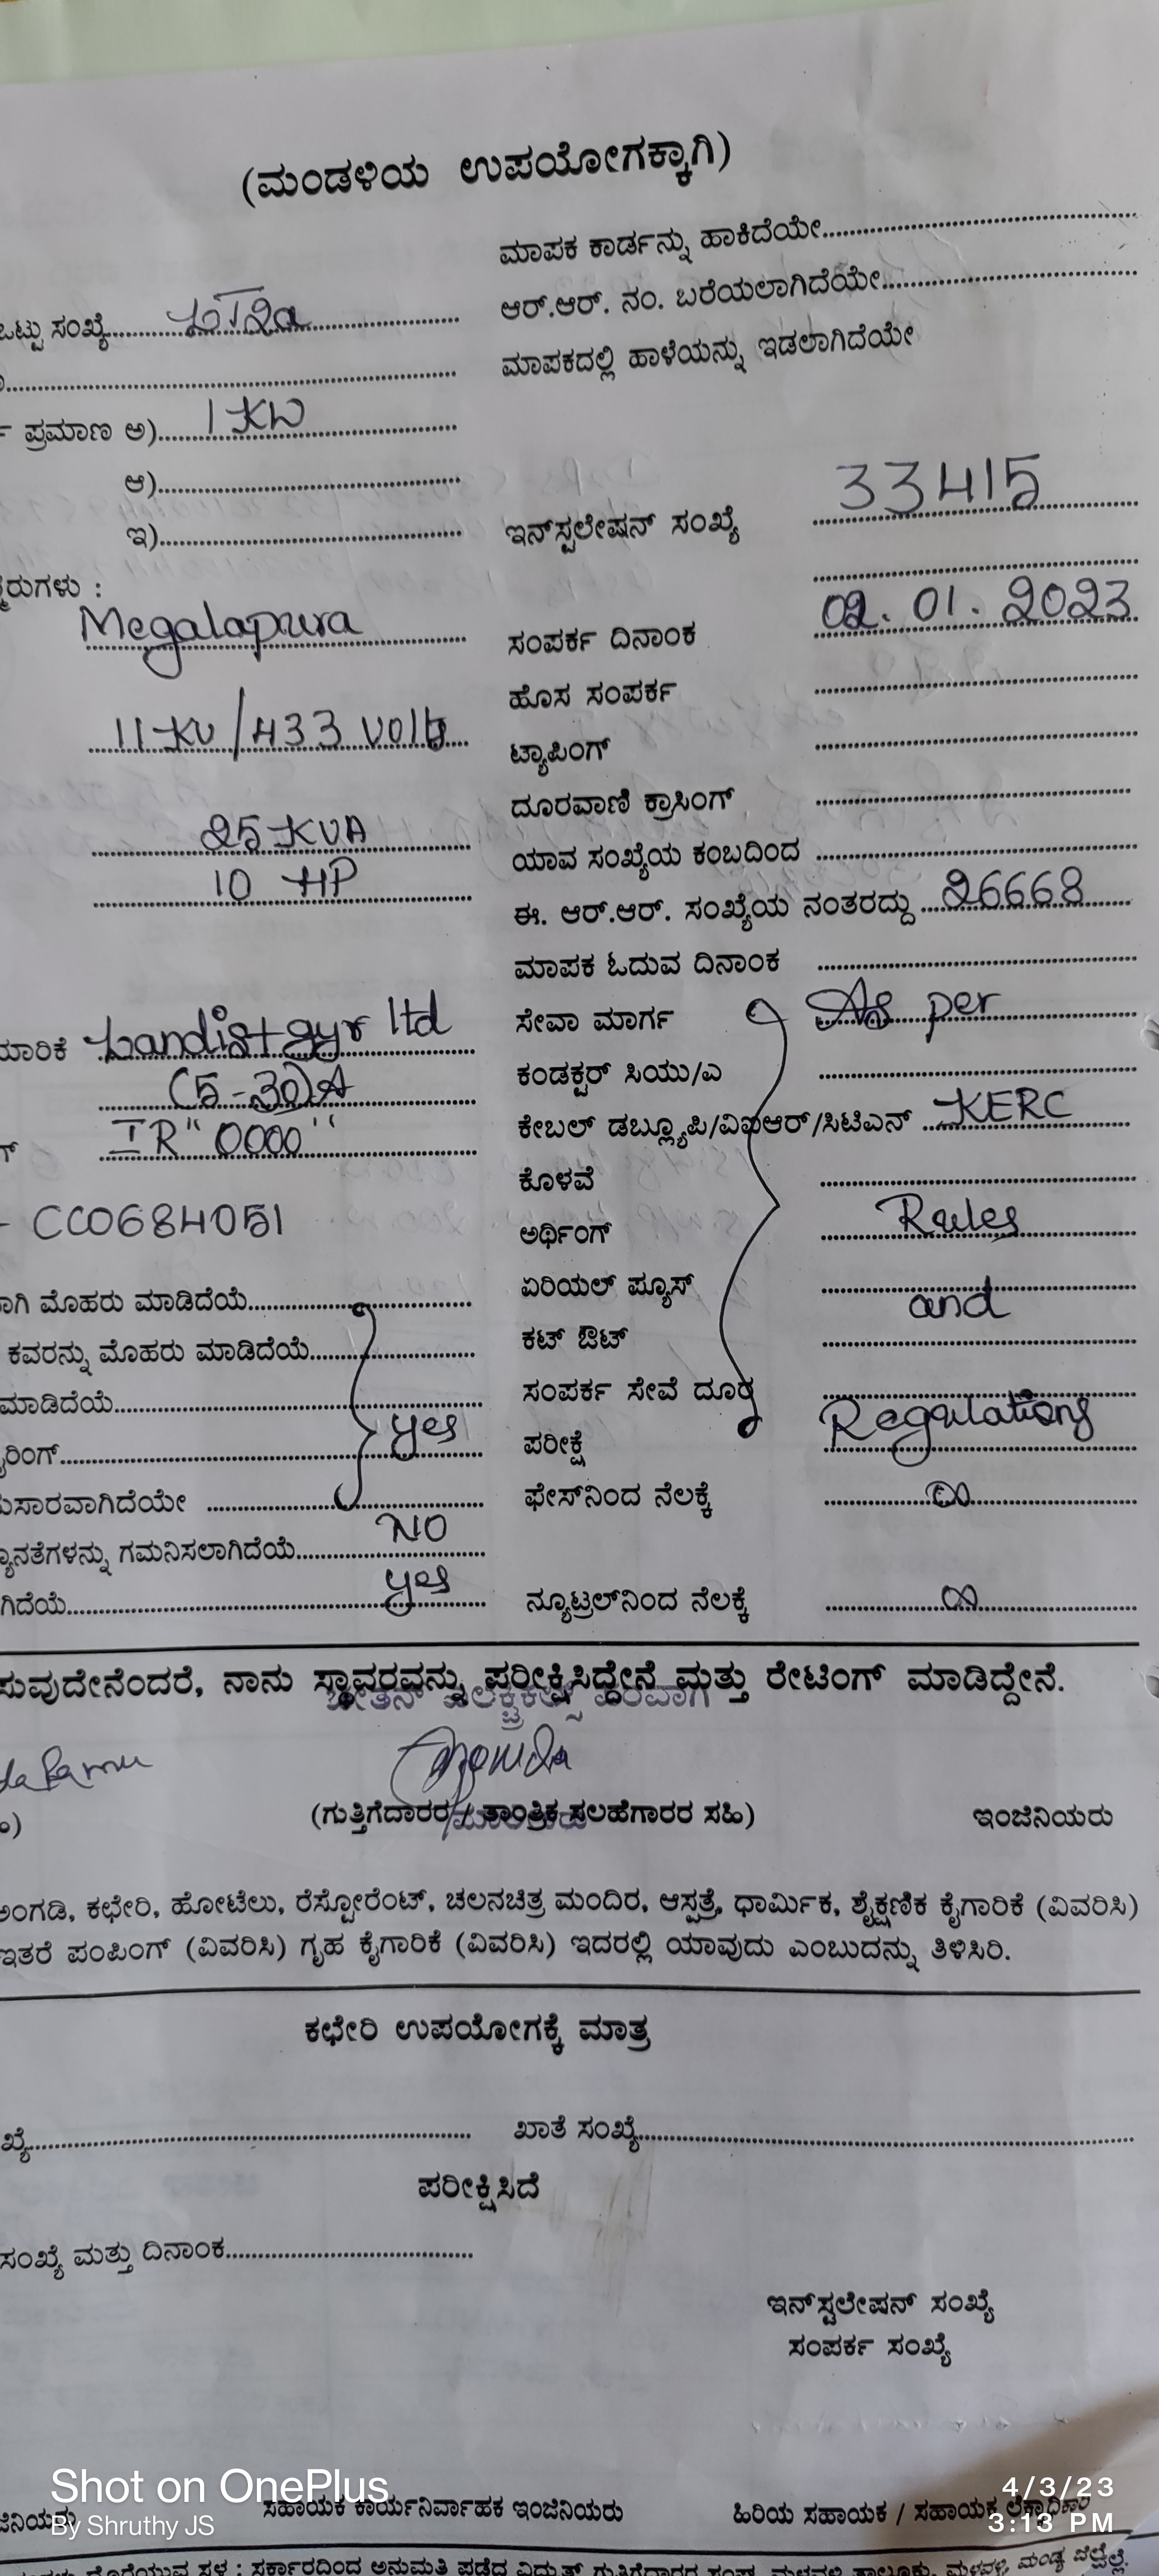 (ಮಂಡಳಿಯ ಉಪಯೋಗಕ್ಕಾಗಿ)
ಮಾಪಕ ಕಾರ್ಡನ್ನು ಹಾಕಿದೆಯೇ
ಒಟ್ಟು ಸಂಖ್ಯೆ LT2a ಆರ್.ಆರ್. ನಂ. ಬರೆಯಲಾಗಿದೆಯೇ
ಮಾಪಕದಲ್ಲಿ ಹಾಳೆಯನ್ನು ಇಡಲಾಗಿದೆಯೇ
ಪ್ರಮಾಣ ಅ) 1 KW
ಆ)
ಇ) ಇನ್‌ಸ್ಟಲೇಷನ್ ಸಂಖ್ಯೆ 33415
Megalapura ಸಂಪರ್ಕ ದಿನಾಂಕ 02.01.2023
ಹೊಸ ಸಂಪರ್ಕ
11 KV/433 Volts ಟ್ಯಾಪಿಂಗ್
ದೂರವಾಣಿ ಕ್ರಾಸಿಂಗ್
25 KVA ಯಾವ ಸಂಖ್ಯೆಯ ಕಂಬದಿಂದ
10 HP ಈ. ಆರ್.ಆರ್. ಸಂಖ್ಯೆಯ ನಂತರದ್ದು 26668
ಮಾಪಕ ಓದುವ ದಿನಾಂಕ
Landis+gyr ltd ಸೇವಾ ಮಾರ್ಗ As per
(5-30)A ಕಂಡಕ್ಟರ್ ಸಿಯು/ಎ
IR "0000" ಕೇಬಲ್ ಡಬ್ಲ್ಯೂಪಿ/ವಿಐಆರ್/ಸಿಟಿಎನ್ KERC
ಕೊಳವೆ
CC0684051 ಅರ್ಥಿಂಗ್ Rules
ಮೊಹರು ಮಾಡಿದೆಯೆ ಏರಿಯಲ್ ಫ್ಯೂಸ್ and
ಕವರನ್ನು ಮೊಹರು ಮಾಡಿದೆಯೆ ಕಟ್ ಔಟ್
ಮಾಡಿದೆಯೆ ಸಂಪರ್ಕ ಸೇವೆ ದೂರ
yes ಪರೀಕ್ಷೆ Regulations
ಫೇಸ್‌ನಿಂದ ನೆಲಕ್ಕೆ ∞
ಗಮನಿಸಲಾಗಿದೆಯೆ NO
yes ನ್ಯೂಟ್ರಲ್‌ನಿಂದ ನೆಲಕ್ಕೆ ∞
ನಾನು ಸ್ಥಾವರವನ್ನು ಪರೀಕ್ಷಿಸಿದ್ದೇನೆ ಮತ್ತು ರೇಟಿಂಗ್ ಮಾಡಿದ್ದೇನೆ.
(ಗುತ್ತಿಗೆದಾರರ / ತಾಂತ್ರಿಕ ಸಲಹೆಗಾರರ ಸಹಿ) ಇಂಜಿನಿಯರು
ಅಂಗಡಿ, ಕಛೇರಿ, ಹೋಟೆಲು, ರೆಸ್ಟೋರೆಂಟ್, ಚಲನಚಿತ್ರ ಮಂದಿರ, ಆಸ್ಪತ್ರೆ, ಧಾರ್ಮಿಕ, ಶೈಕ್ಷಣಿಕ ಕೈಗಾರಿಕೆ (ವಿವರಿಸಿ)
ಇತರೆ ಪಂಪಿಂಗ್ (ವಿವರಿಸಿ) ಗೃಹ ಕೈಗಾರಿಕೆ (ವಿವರಿಸಿ) ಇದರಲ್ಲಿ ಯಾವುದು ಎಂಬುದನ್ನು ತಿಳಿಸಿರಿ.
ಕಛೇರಿ ಉಪಯೋಗಕ್ಕೆ ಮಾತ್ರ
ಖಾತೆ ಸಂಖ್ಯೆ
ಪರೀಕ್ಷಿಸಿದೆ
ಸಂಖ್ಯೆ ಮತ್ತು ದಿನಾಂಕ
ಇನ್‌ಸ್ಟಲೇಷನ್ ಸಂಖ್ಯೆ
ಸಂಪರ್ಕ ಸಂಖ್ಯೆ
Shot on OnePlus 4/3/23
ಸಹಾಯಕ ಕಾರ್ಯನಿರ್ವಾಹಕ ಇಂಜಿನಿಯರು ಹಿರಿಯ ಸಹಾಯಕ / ಸಹಾಯಕ
By Shruthy JS 3:13 PM